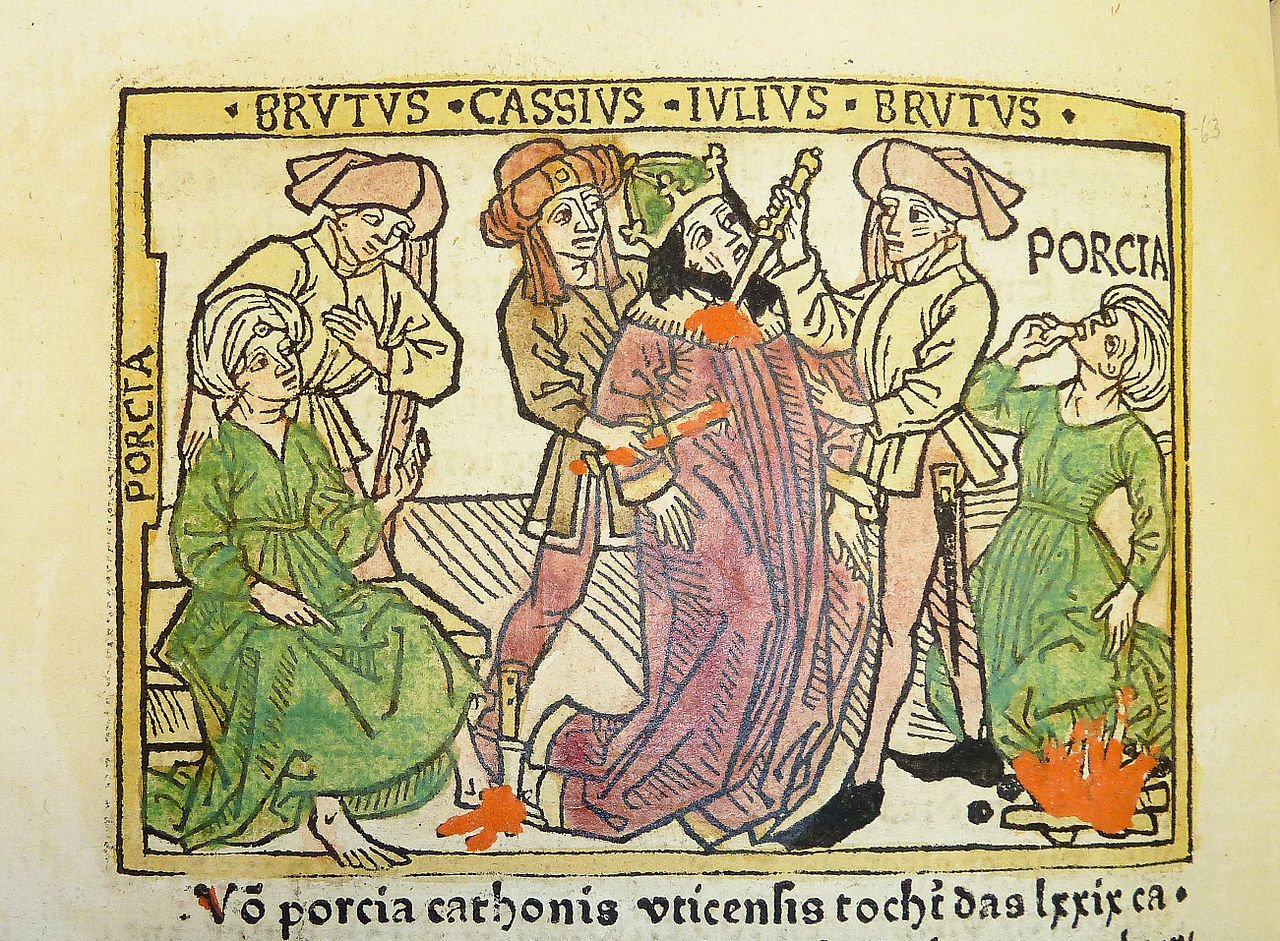 · BRVTVS · CASSIVS · IVLIVS · BRVTVS ·
63
PORCIA
PORCIA
Võ porcia cathonis vticensis tocht̾ das lxxix ca·